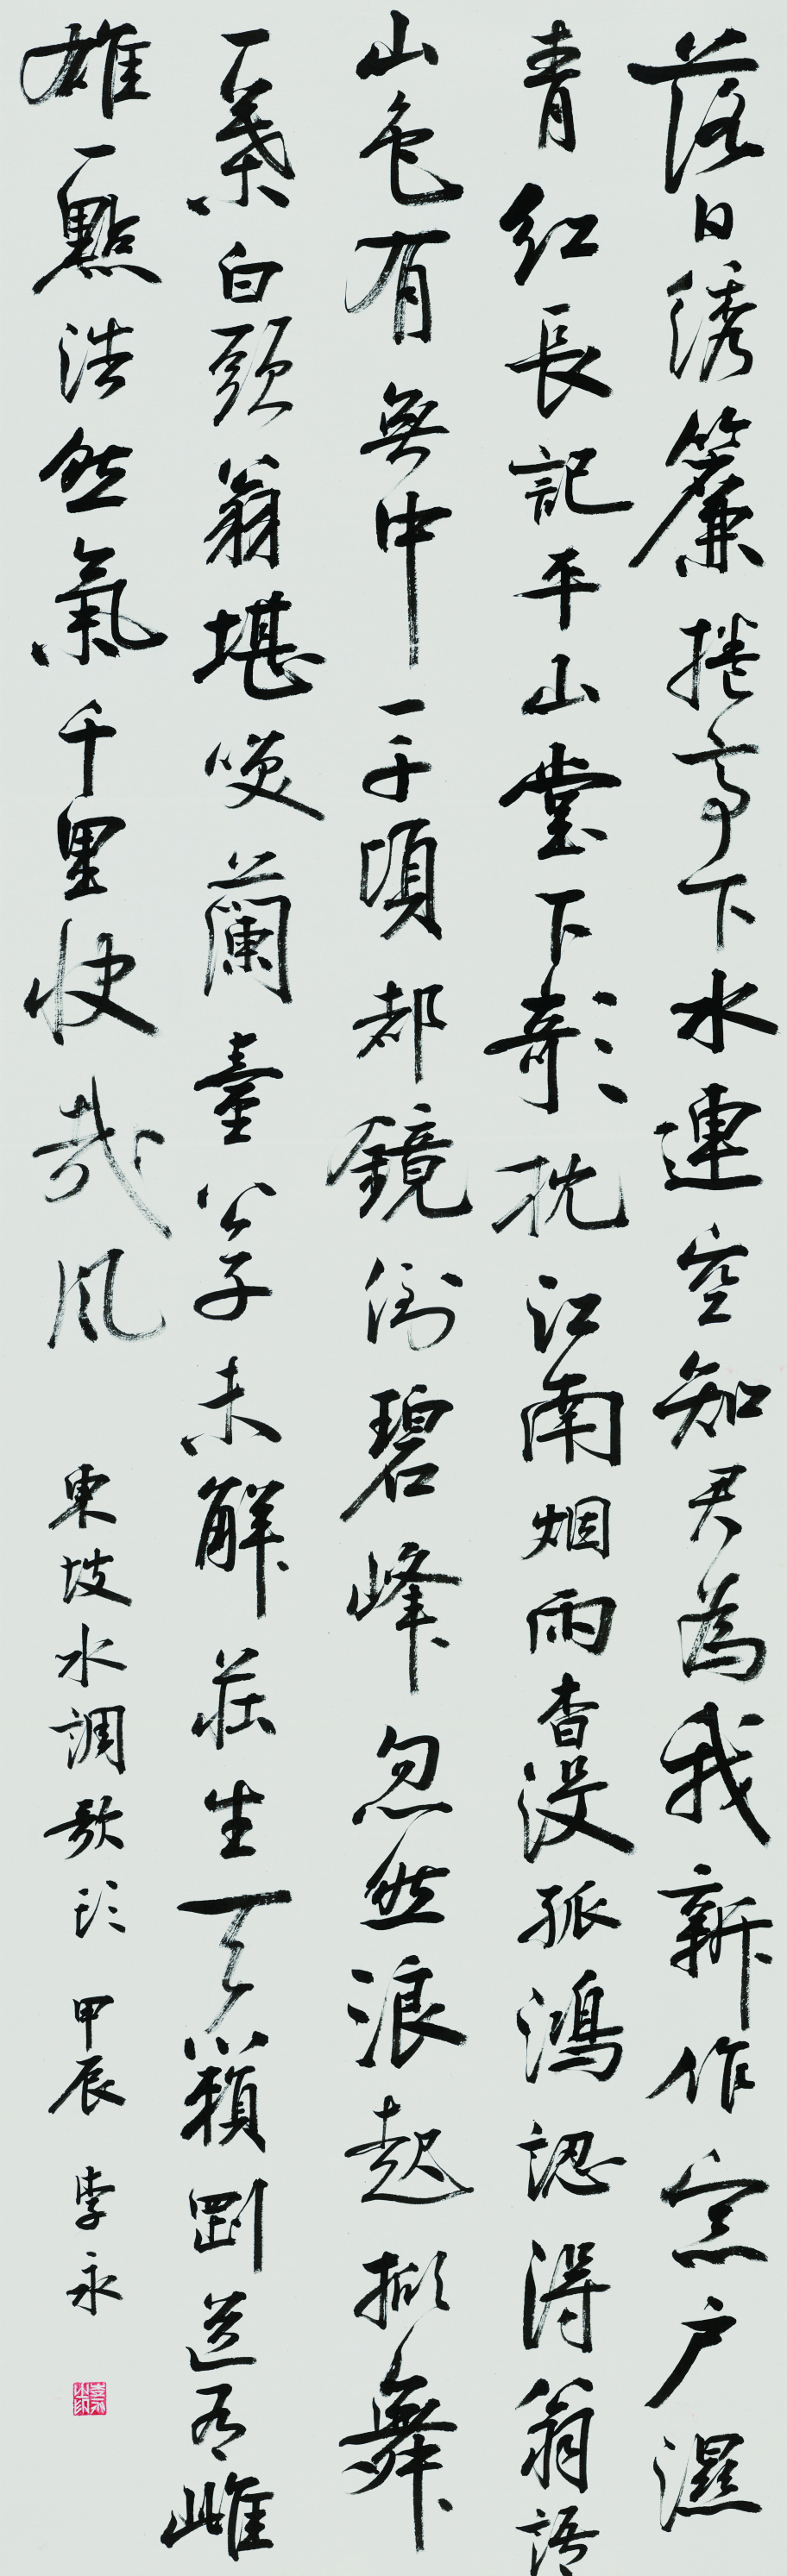 落日綉簾捲亭下水連空知君為我新作窓户濕
青紅長記平山堂下欹枕江南烟雨杳没孤鴻認得翁語
山色有無中一千頃都鏡倒碧峰忽然浪起掀舞
一葉白頭翁堪咲蘭臺公子未解莊生天籟剛道有雌
雄一點浩然氣千里快哉風 東坡水調歌頭 甲辰 李永